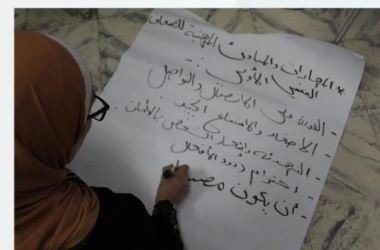 * المهارات والمبادئ المهنية للاسعاف
النفسي الأولي :-
- القدرة على الاتصال والتواصل
- الاصغاء والاستماع الجيد
- التهدئة واشعار الشخص بالأمان.
- احترام ردود الأفعال
- أن يكون